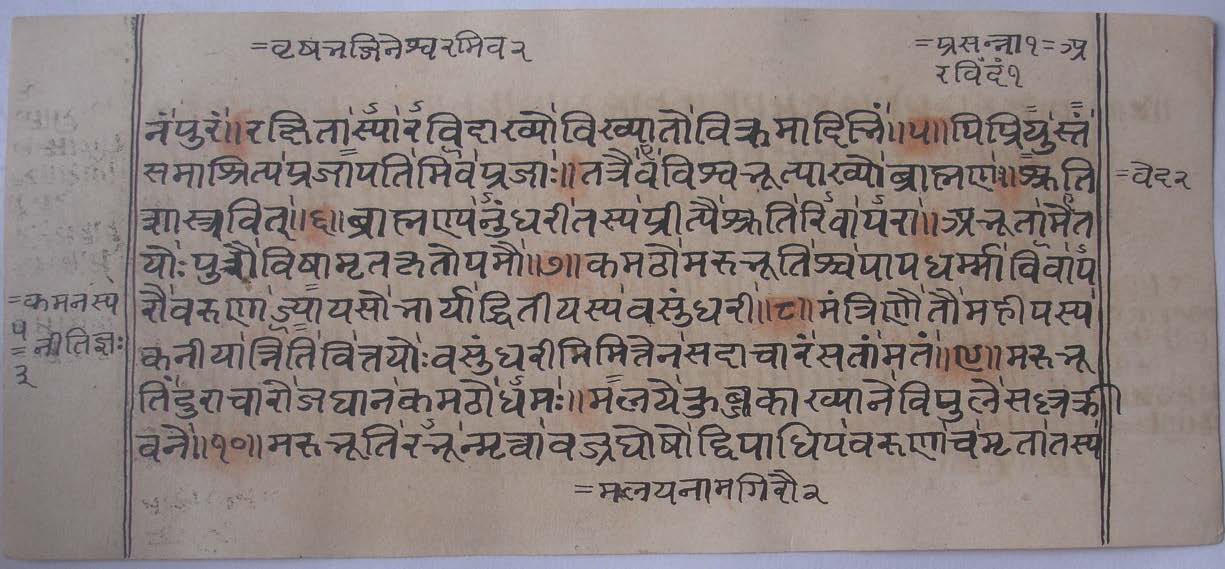 =वृषभजिनेश्वरमिव२
=प्रसन्ना१=अर
रविंदं१
नंपुरं॥रक्षितास्पारविंदाख्योविख्यातोविक्रमादिभिः॥५॥पिप्रियुस्तं
समाश्रित्यप्रजापतिमिवप्रजाः॥तत्रैवविश्वभूत्याख्योब्राह्मणःश्रुति
=वेद२
शास्त्रवित्॥६॥ब्राह्मण्यनुंधरीतस्यप्रीत्यैश्रुतिरिवापरा॥अभूतामेत
योःपुत्रौविषामृतकृतोपमौ॥७॥कमठोमरुभूतिश्चपापधर्म्माविवाप
रौवरुणाज्यायसोभार्याद्वितीयस्यवसुंधरी॥८॥मंत्रिणौतौमहीपस्य
कनीयान्नीतिवित्तयोःवसुंधरीनिमित्तेनसदाचारंसतांमतं॥९॥मरुभू
तिंदुराचारोजघानकमठोधमः॥मलयेकुब्जकाख्यानेविपुलेसल्लकी
वने॥१०॥मरुभूतिरभून्मृत्वावज्रघोषोद्विपाधिपःवरुणाचमृतातस्य
=मलयनामगिरौ२